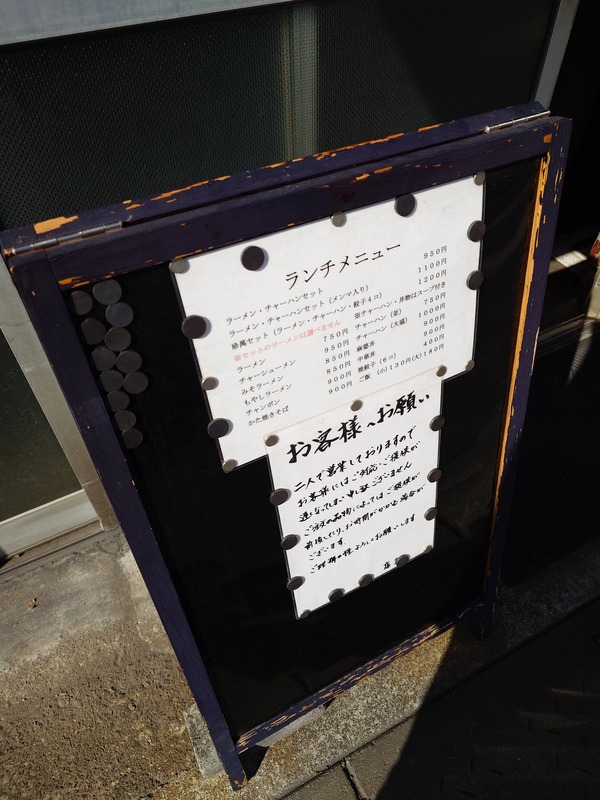 ランチメニュー
ラーメン・チャーハンセット 950円
ラーメン・チャーハンセット（メンマ入り） 1100円
珍萬セット（ラーメン・チャーハン・餃子4コ） 1200円
※セットのラーメンは選べません
※チャーハン・丼物はスープ付き
ラーメン 750円
チャーシューメン 950円
みそラーメン 850円
もやしラーメン 850円
チャンポン 900円
かた焼きそば 900円
チャーハン（並） 750円
チャーハン（大盛） 1000円
麻婆丼 900円
中華丼 900円
焼餃子（6コ） 400円
ご飯 （小）130円（大）180円
お客様へお願い
二人で営業しておりますので
お客様にはご対応、ご提供が
遅くなってしまい申し訳ございません
ご注文の品物によってはご提供が
前後したり、お時間がかかる場合が
ございます。
ご理解の程よろしくお願いします
店